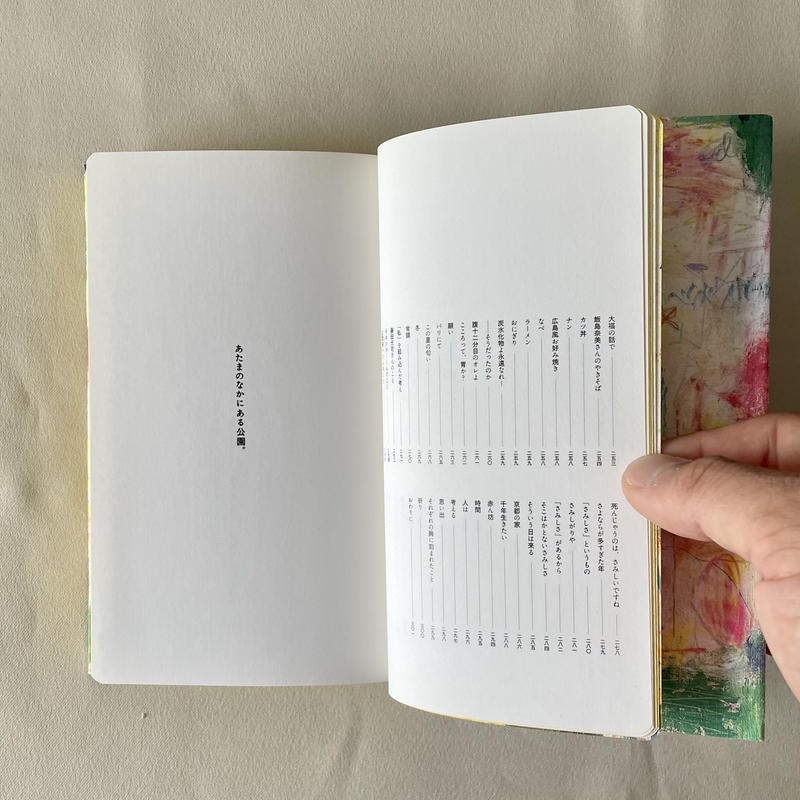 大福の話で 二五三
飯島奈美さんのやきそば 二五四
カツ丼 二五七
ナン 二五八
広島風お好み焼き 二五八
なべ 二五八
ラーメン 二五九
おにぎり 二五九
炭水化物よ永遠なれ! 二五九
──そうだったのか 二六〇
腹十二分目のオレよ 二六一
こころって、胃か? 二六二
願い 二六三
パリにて 二六五
この星の匂い 二六八
冬、 二六九
常識 二七〇
「私」を組み込んだ考え 二七一
死んじゃうのは、さみしいですね 二七八
さよならが多すぎた年 二七九
「さみしさ」というもの 二八〇
さみしがりや 二八一
「さみしさ」があるから 二八二
そこはかとないさみしさ 二八四
そういう日は来る 二八五
京都の家 二八六
千年生きたい 二八八
赤ん坊 二九四
時間 二九五
人は 二九六
考える 二九七
思い出 二九八
それぞれの胸に刻まれたこと 二九九
祈り 三〇〇
おわりに 三〇一
あたまのなかにある公園。